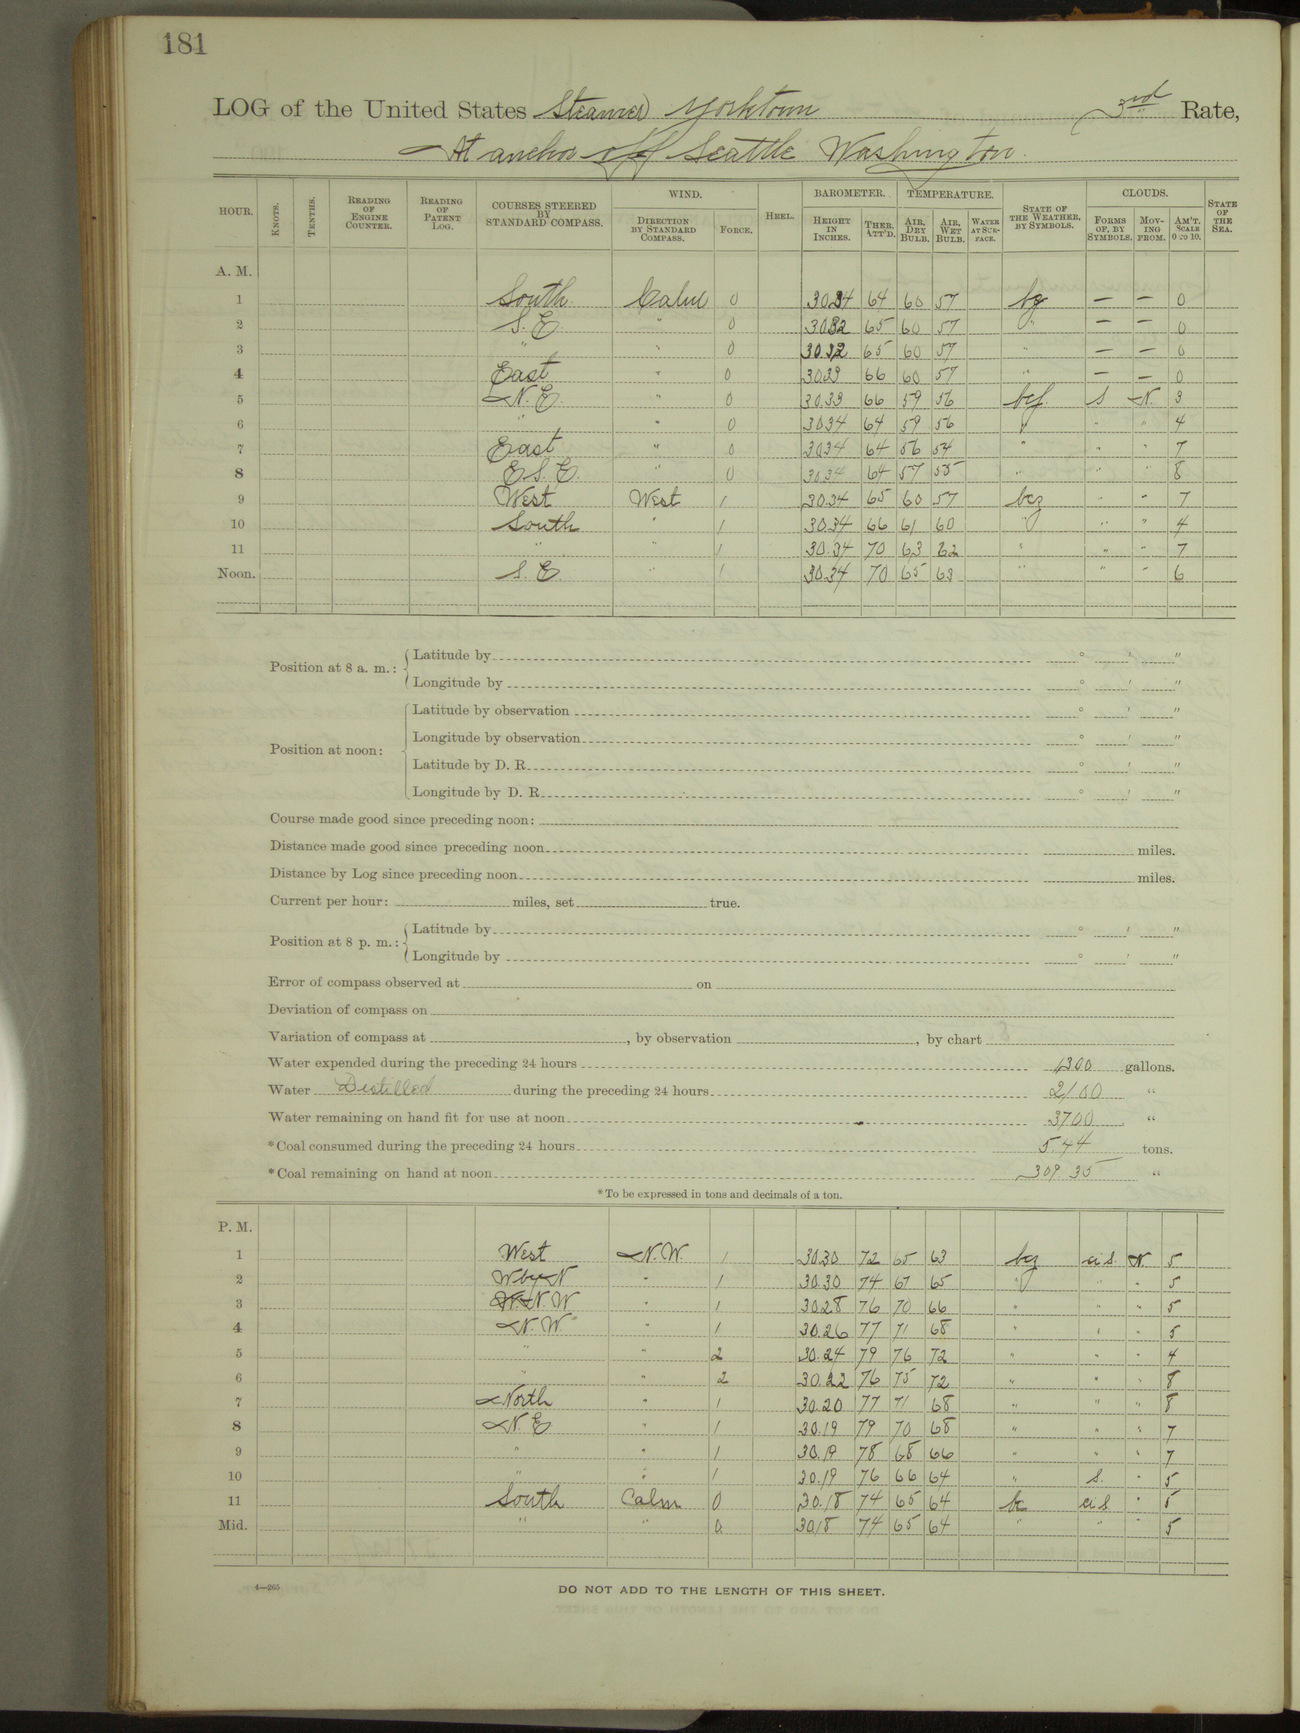 181
LOG of the United States Steamer Yorktown 3rd Rate,
At anchor off Seattle Washington.
HOUR. KNOTS. TENTHS. READING OF ENGINE COUNTER. READING OF PATENT LOG. COURSES STEERED BY STANDARD COMPASS. WIND. DIRECTION BY STANDARD COMPASS. FORCE. HEEL. BAROMETER. HEIGHT IN INCHES. THER. ATT'D. TEMPERATURE. AIR, DRY BULB. AIR, WET BULB. WATER AT SURFACE. STATE OF THE WEATHER, BY SYMBOLS. CLOUDS. FORMS OF, BY SYMBOLS. MOVING FROM. AM'T. SCALE 0 TO 10. STATE OF THE SEA.
A. M.
1 South Calm 0 30.34 64 60 57 bz — — 0
2 S. E. " 0 30.32 65 60 57 " — — 0
3 " " 0 30.32 65 60 57 " — — 0
4 East " 0 30.33 66 60 57 " — — 0
5 N. E. " 0 30.33 66 59 56 bcf S N. 3
6 " " 0 30.34 64 59 56 " " " 4
7 East " 0 30.34 64 56 54 " " " 7
8 E. S. E. " 0 30.34 64 57 55 " " " 8
9 West West 1 30.34 65 60 57 bcz " " 7
10 South " 1 30.34 66 61 60 " " " 4
11 " " 1 30.34 70 63 62 " " " 7
Noon. S. E. " 1 30.34 70 65 63 " " " 6
Position at 8 a. m.: Latitude by ° ' "
Longitude by ° ' "
Position at noon: Latitude by observation ° ' "
Longitude by observation ° ' "
Latitude by D. R. ° ' "
Longitude by D. R. ° ' "
Course made good since preceding noon:
Distance made good since preceding noon miles.
Distance by Log since preceding noon miles.
Current per hour: miles, set true.
Position at 8 p. m.: Latitude by ° ' "
Longitude by ° ' "
Error of compass observed at on
Deviation of compass on
Variation of compass at , by observation , by chart
Water expended during the preceding 24 hours gallons.
Water Distilled during the preceding 24 hours 2100 "
Water remaining on hand fit for use at noon 3700 "
*Coal consumed during the preceding 24 hours 5.44 tons.
*Coal remaining on hand at noon 309.35 "
*To be expressed in tons and decimals of a ton.
P. M.
1 West N. W. 1 30.30 72 65 63 bcz ci S. N. 5
2 W by N " 1 30.30 74 67 65 " " " 5
3 W. N. W " 1 30.28 76 70 66 " " " 5
4 N. W. " 1 30.26 77 71 68 " " " 5
5 " " 2 30.24 79 76 72 " " " 4
6 " " 2 30.22 76 75 72 " " " 8
7 North " 1 30.20 77 71 68 " " " 8
8 N. E " 1 30.19 79 70 68 " " " 7
9 " " 1 30.19 78 68 66 " " " 7
10 " " 1 30.19 76 66 64 " S. " 5
11 South Calm 0 30.18 74 65 64 bc ci S " 5
Mid. " " 0 30.18 74 65 64 " " " 5
4—265
DO NOT ADD TO THE LENGTH OF THIS SHEET.